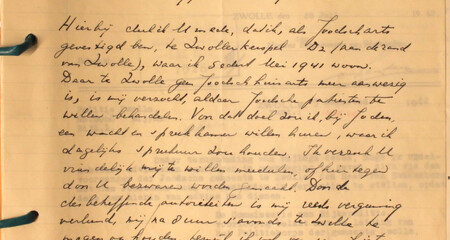 Hierbij deel ik U mede, dat ik, als Joodsch arts
gevestigd ben, te Zwollerkerspel (aan de rand
van Zwolle), waar ik sedert Mei 1941 woon.
Daar te Zwolle geen Joodsch huisarts meer aanwezig
is, is mij verzocht, aldaar Joodsche patienten te
willen behandelen. Voor dat doel zou ik, bij Joden,
een wacht en spreekkamer willen huren, waar ik
dagelijks spreekuur zou houden. Ik verzoek U
vriendelijk mij te willen mededelen, of hier tegen
door U bezwaren worden gemaakt. Door de
desbetreffende autoriteiten is mij reeds vergunning
verleend, mij na 8 uur 's avonds te Zwolle te
mogen